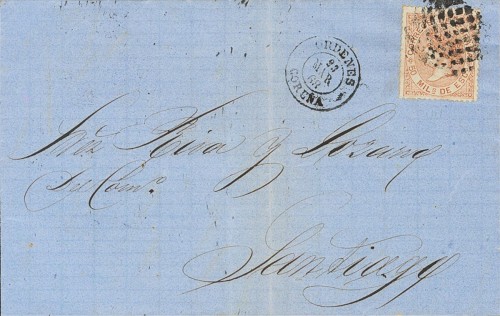 ORDENES
23
MAR
68
CORUÑA
MILS DE ES
Sres Riva y Lozano
Del Comº.
Santiago